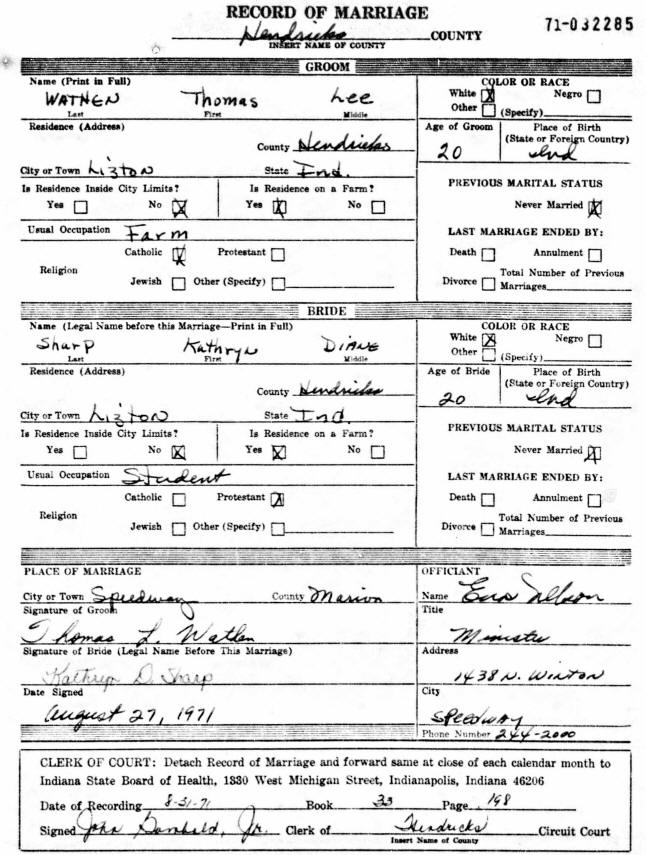 RECORD OF MARRIAGE
71-032285
Hendricks COUNTY
INSERT NAME OF COUNTY
GROOM
Name (Print in Full)
WATHEN Thomas Lee
Last First Middle
COLOR OR RACE
White Negro
Other (Specify)
Residence (Address)
County Hendricks
Age of Groom Place of Birth
(State or Foreign Country)
20 Ind
City or Town Lizton State Ind.
Is Residence Inside City Limits? Is Residence on a Farm?
Yes No Yes No
PREVIOUS MARITAL STATUS
Never Married
Usual Occupation Farm
LAST MARRIAGE ENDED BY:
Religion
Catholic Protestant
Jewish Other (Specify)
Death Annulment
Divorce Total Number of Previous
Marriages
BRIDE
Name (Legal Name before this Marriage—Print in Full)
Sharp Kathryn DIANE
Last First Middle
COLOR OR RACE
White Negro
Other (Specify)
Residence (Address)
County Hendricks
Age of Bride Place of Birth
(State or Foreign Country)
20 Ind
City or Town Lizton State Ind.
Is Residence Inside City Limits? Is Residence on a Farm?
Yes No Yes No
PREVIOUS MARITAL STATUS
Never Married
Usual Occupation Student
LAST MARRIAGE ENDED BY:
Religion
Catholic Protestant
Jewish Other (Specify)
Death Annulment
Divorce Total Number of Previous
Marriages
PLACE OF MARRIAGE
City or Town Speedway County Marion
Signature of Groom
Thomas L. Wathen
Signature of Bride (Legal Name Before This Marriage)
Kathryn D. Sharp
Date Signed
August 27, 1971
OFFICIANT
Name
Title
Minister
Address
1438 N. WINTON
City
SPEEDWAY
Phone Number 244-2000
CLERK OF COURT: Detach Record of Marriage and forward same at close of each calendar month to
Indiana State Board of Health, 1330 West Michigan Street, Indianapolis, Indiana 46206
Date of Recording 8-31-71 Book 33 Page 198
Signed John Jr. Clerk of Hendricks Circuit Court
Insert Name of County